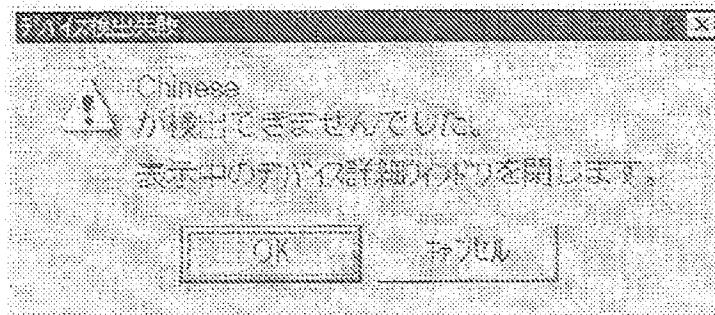 デバイス検出失敗
Chinese
が検出できませんでした。
表示中のデバイス詳細ウィンドウを閉じます。
OK
キャンセル